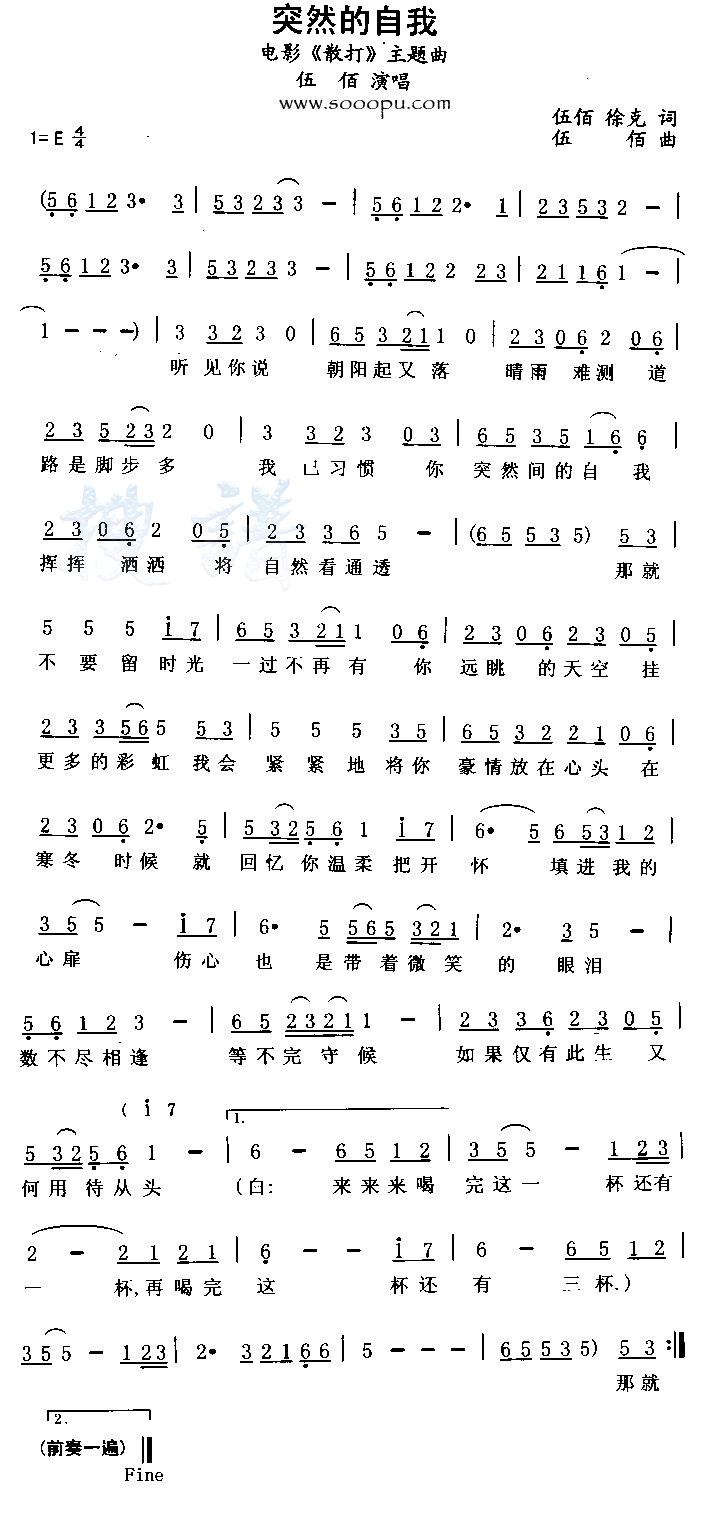 突然的自我
电影《散打》主题曲
伍 佰 演唱
www.sooopu.com
伍佰 徐克 词
1=E 4/4 伍 佰 曲
(5 6 1 2 3· 3 | 5 3 2 3 3 - | 5 6 1 2 2· 1 | 2 3 5 3 2 - |
5 6 1 2 3· 3 | 5 3 2 3 3 - | 5 6 1 2 2 2 3 | 2 1 1 6 1 - |
1 - - -) | 3 3 2 3 0 | 6 5 3 2 1 1 0 | 2 3 0 6 2 0 6 |
听 见你说 朝阳起又落 晴雨 难测 道
2 3 5 2 3 2 0 | 3 3 2 3 0 3 | 6 5 3 5 1 6 6 |
路是脚步多 我 已习惯 你 突然间的自 我
2 3 0 6 2 0 5 | 2 3 3 6 5 - | (6 5 5 3 5) 5 3 |
挥挥 洒洒 将 自然看通透 那就
5 5 5 i 7 | 6 5 3 2 1 1 0 6 | 2 3 0 6 2 3 0 5 |
不 要 留 时光 一过不再有 你 远眺 的天空 挂
2 3 3 5 6 5 5 3 | 5 5 5 3 5 | 6 5 3 2 2 1 0 6 |
更多的彩 虹 我会 紧 紧 地 将你 豪情放在心头 在
2 3 0 6 2· 5 | 5 3 2 5 6 1 i 7 | 6· 5 6 5 3 1 2 |
寒冬 时候 就 回忆 你温柔 把开 怀 填进我的
3 5 5 - i 7 | 6· 5 5 6 5 3 2 1 | 2· 3 5 - |
心扉 伤心 也 是带着微笑 的 眼泪
5 6 1 2 3 - | 6 5 2 3 2 1 1 - | 2 3 3 6 2 3 0 5 |
数不尽相逢 等不完守候 如果仅有此生 又
( i 7 1.
5 3 2 5 6 1 - | 6 - 6 5 1 2 | 3 5 5 - 1 2 3 |
何用 待从头 (白: 来来来喝 完这一 杯还有
2 - 2 1 2 1 | 6 - - i 7 | 6 - 6 5 1 2 |
一 杯,再喝完 这 杯还 有 三杯.)
3 5 5 - 1 2 3 | 2· 3 2 1 6 6 | 5 - - - | 6 5 5 3 5) 5 3 :‖
那就
2.
(前奏一遍) ‖
Fine